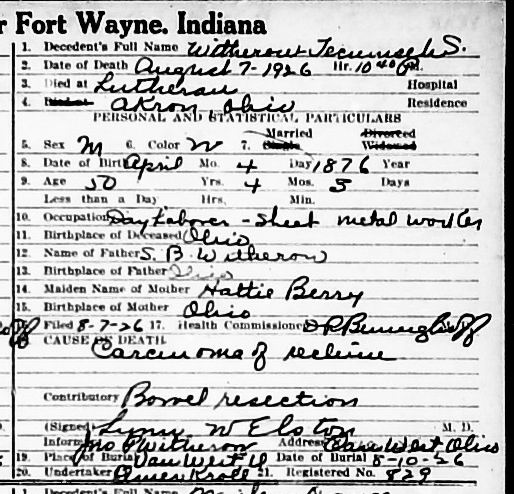 r Fort Wayne, Indiana
1. Decedent's Full Name Witherow Tecumseh S.
2. Date of Death August 7-1926 Hr. 10 40 P.M.
3. Died at Lutheran Hospital
4. Akron, Ohio Residence
PERSONAL AND STATISTICAL PARTICULARS
Married Divorced
5. Sex M 6. Color W 7. Single Widowed
8. Date of Birth April Mo. 4 Day 1876 Year
9. Age 50 Yrs. 4 Mos. 3 Days
Less than a Day Hrs. Min.
10. Occupation Day Laborer - Sheet metal worker
11. Birthplace of Deceased Ohio
12. Name of Father S. B. Witherow
13. Birthplace of Father Ohio
14. Maiden Name of Mother Hattie Berry
15. Birthplace of Mother Ohio
Filed 8-7-26 17. Health Commissioner
CAUSE OF DEATH
Carcinoma of
Contributory Bowel resection
(Signed) Lynn W Elston M. D.
Inform Jno P Witherow Address Van West Ohio
19. Place of Burial Van West O Date of Burial 8-10-26
20. Undertaker Owen Kroll 21. Registered No. 829
1. Decedent's Full Name